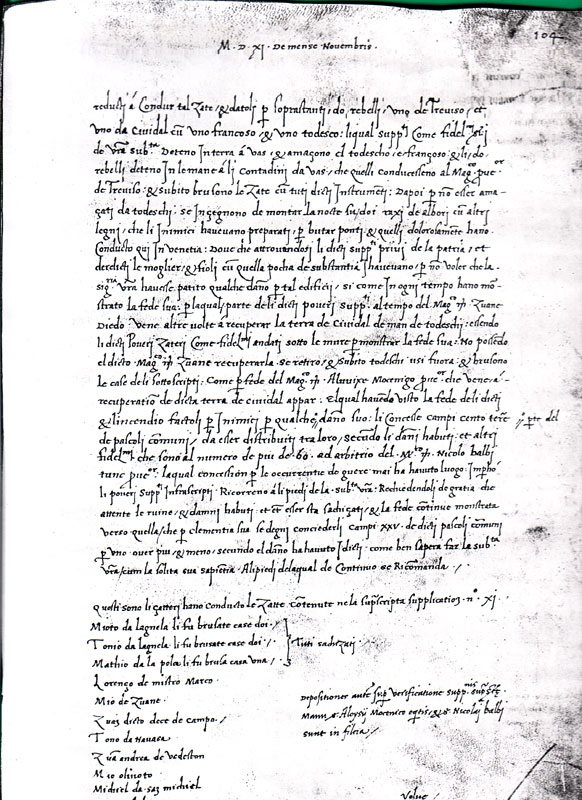 104
M. D. XI. De mense Novembris.
reducti á Condur tal Zate, & datoli p soprastanti, do, rebelli, uno de Treviso, et
uno da Cividal cũ uno francoso, & uno todesco: liqual suppti Come fidel
de vra subta Deteno in terra á vas, & amazono el todescho, e, franzoso: & li, do,
rebelli deteno in le mane á li Contadini da vas, che quelli Conducesseno al Magco pueor
de Treviso: & subito brusono le Zate cũ tuti dicti Instrumēti: Dapoi p nõ esser ama-
zati da todeschi: se Inzegnono de montar la nocte su, doi raxi de albori cũ altri
legni, che li inimici havevano preparati, p butar ponti: & quelli dolorosamēte hano
Conducto qui In Venetia: Dove che attrovandosi li dicti suppti privi de la patria, et
derelicti le moglier, & fioli cũ quella pocha de substantia havevano, p nõ voler che la
sigta vra havesse patito qualche dano p tal edificij, si come In ogni tempo hano mo-
strato la fede sua: p laqual, parte de li dicti poveri suppti al tempo del Magco m Zuane
Diedo: Vene altre volte á recuperar la terra de Cividal de man de todeschi: essendo
li dicti poveri Zateri Come fidelmi andati sotto le mure p monstrar la fede sua: No possēdo
el dicto Magco m Zuane recuperarla se retiro, & subito todeschi ussi fuora: & brusono
le case de li sottoscripti: Come p fede del Magco m Aluuixe Mocenigo pueor che vene a
recuperatiõ de dicta terra de cividal appar: El qual havēdo visto la fede de li dicti
& lincendio factoli p Inimici p qualche dano suo: li Concesse Campi cento p parte del
de pascoli comuni, da esser distribuiti tra loro, secūdo li dani habuti: et altri
fidelmi che sono al numero de piu de 60: ad arbitrio del Mco m Nicolo balbi
tunc pueor: laqual concession p le occurrentie de guere mai ha havuto luogo: Impho
li poveri suppti Infrascripti Ricorreno á li piedi de la subta vra: Rechiedendoli de gratia che
attente le ruine, & damni habuti et esser sta sachizati, & la fede cõtinue monstrata
verso quella, che p clementia sua se degni concederli Campi XXV. de dicti pascoli cõmuni
p uno over piu & meno, secundo el dano ha havuto I dicti: come ben sapera far la subta
vra, cum la solita sua sapientia. A li piedi dela qual de Continuo se Ricomanda. /.
Questi sono li zatteri hano Conducto le Zatte cõtenute ne la supscripta supplicatiõ. no XI.
Mioto da lagnela li fu brusate case doi. /
Tonio da lagnela li fu brusate case doi. /
Tuti sachizati. /
Mathio da la polca li fu brusa casa una /
Lorenzo de mistro Marco.
Mio de Zuane.
Zuan dicto dece de campo. /
Tono da Navaca
Zuā andrea de Vedeston
Mio olivoto
Michiel da san michiel
Depositiones autem sup verificatione supp
Manu Aloysij Mocenico eqtis, & Nicolai balbi
sunt in filcia. /
Volue /